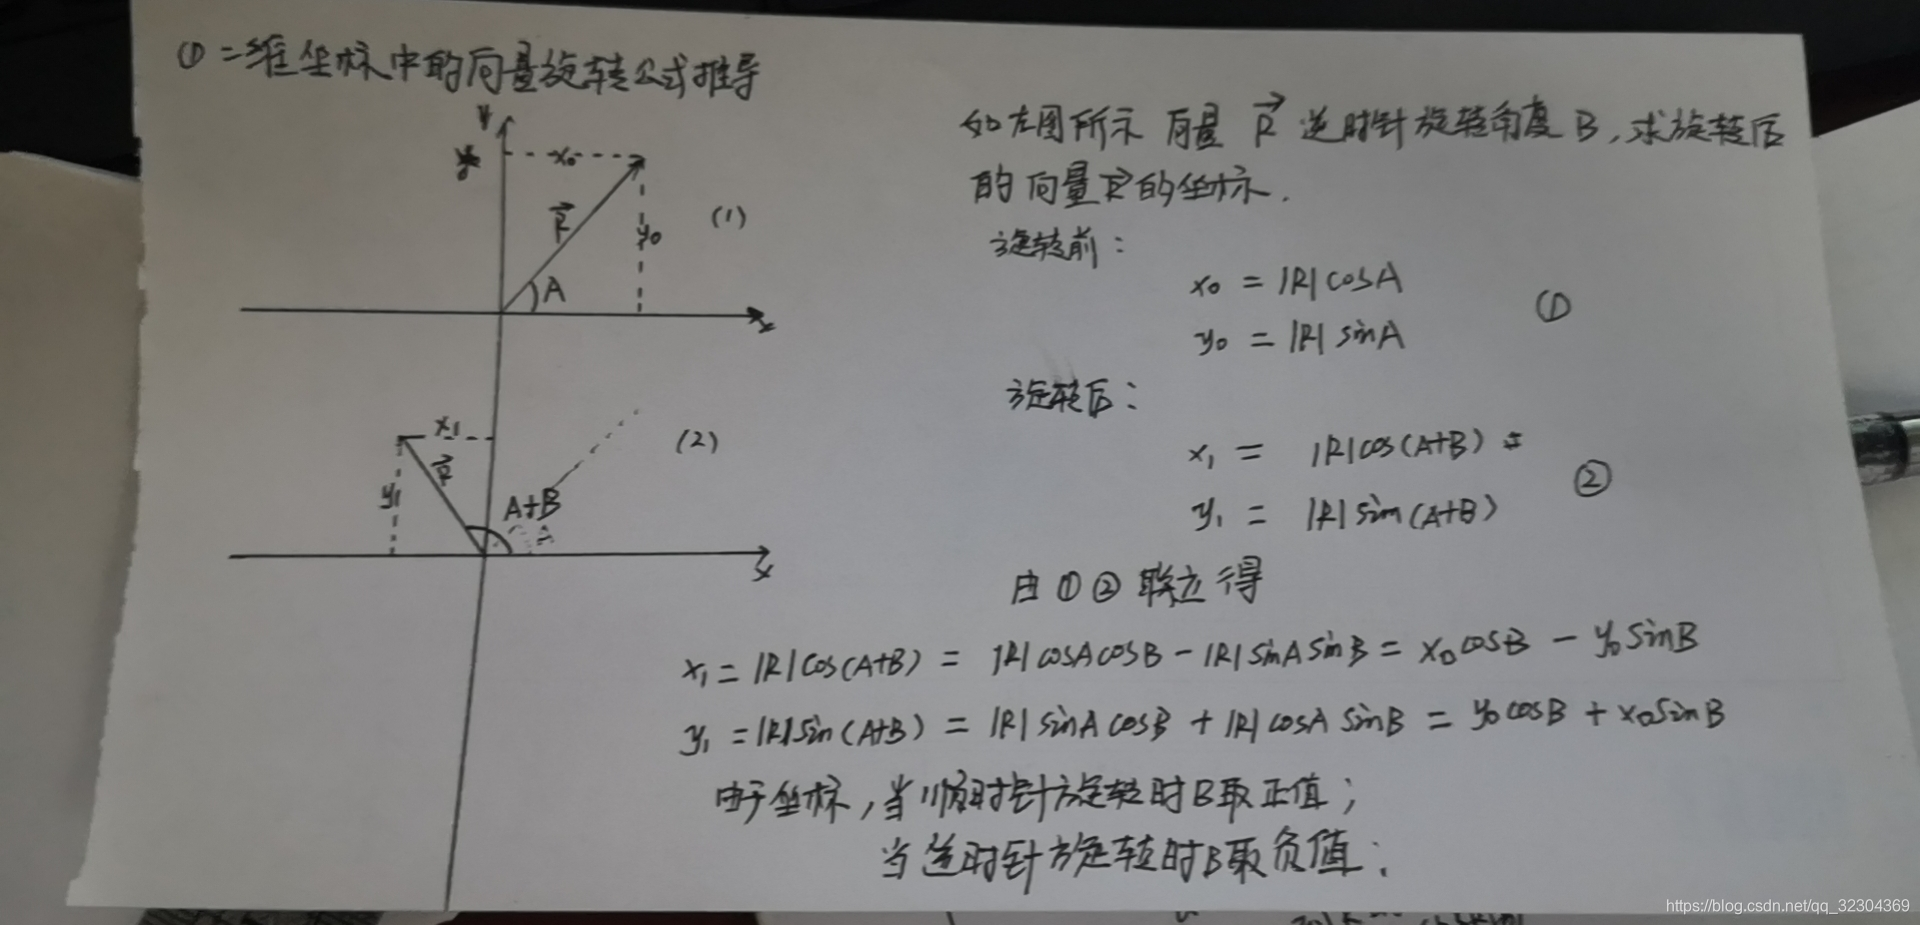 ① 二维坐标中的向量旋转公式推导
y
x₀
R⃗
y₀
A
x
(1)
x₁
R⃗
y₁
A+B
A
x
(2)
如左图所示 向量 R⃗ 逆时针旋转角度 B，求旋转后
的向量R⃗的坐标．
旋转前：
x₀ = |R| cosA
y₀ = |R| sinA
①
旋转后：
x₁ = |R|cos(A+B)
y₁ = |R| sin(A+B)
②
由 ① ② 联立得
x₁ = |R|cos(A+B) = |R| cosA cosB - |R| sinA sinB = x₀ cosB - y₀ sinB
y₁ = |R|sin(A+B) = |R| sinA cosB + |R| cosA sinB = y₀ cosB + x₀ sinB
由于坐标，当顺时针旋转时B取正值；
当逆时针旋转时B取负值；
https://blog.csdn.net/qq_32304369